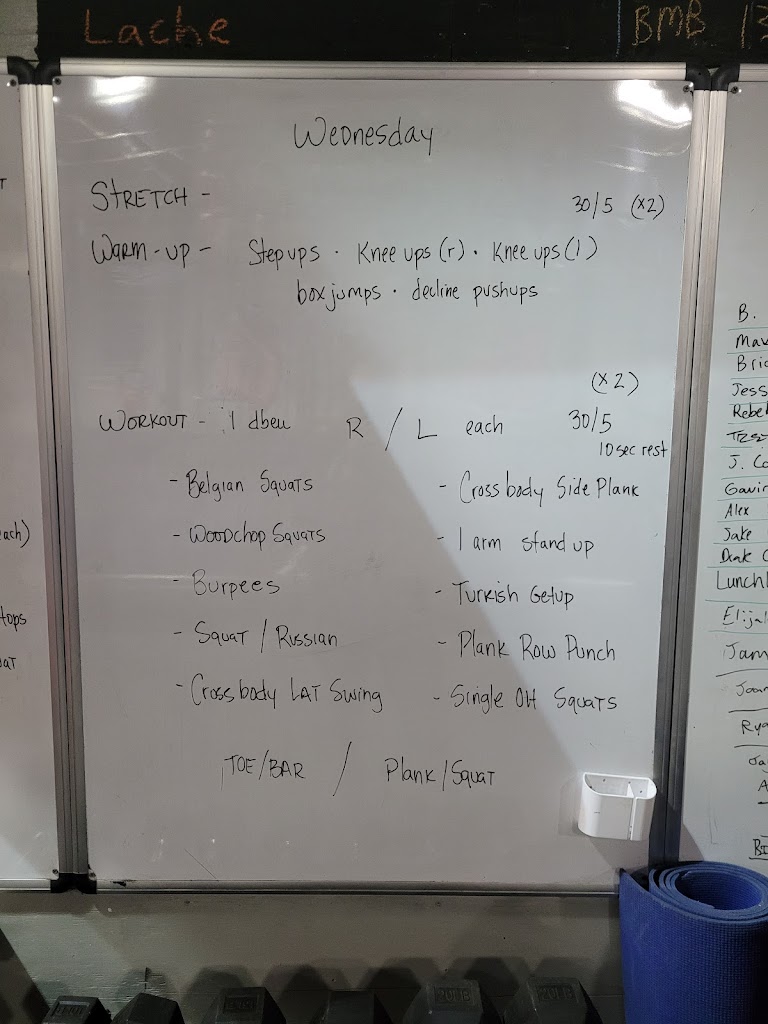 Lache
BMB 13
Wednesday
STRETCH -
30/5 (x2)
Warm-up - Step ups · Knee ups (r) · Knee ups (l)
box jumps · decline pushups
(x2)
WORKOUT - 1 dbell R / L each 30/5
10 sec rest
- Belgian Squats
- Woodchop Squats
- Burpees
- Squat / Russian
- Crossbody LAT Swing
- Cross body Side Plank
- 1 arm stand up
- Turkish Getup
- Plank Row Punch
- Single OH Squats
TOE/BAR / Plank/Squat
each)
B.
Jess
Rebe
J. Co
Gavin
Alex
Jake
Lunch
Elija
Jam
Rya